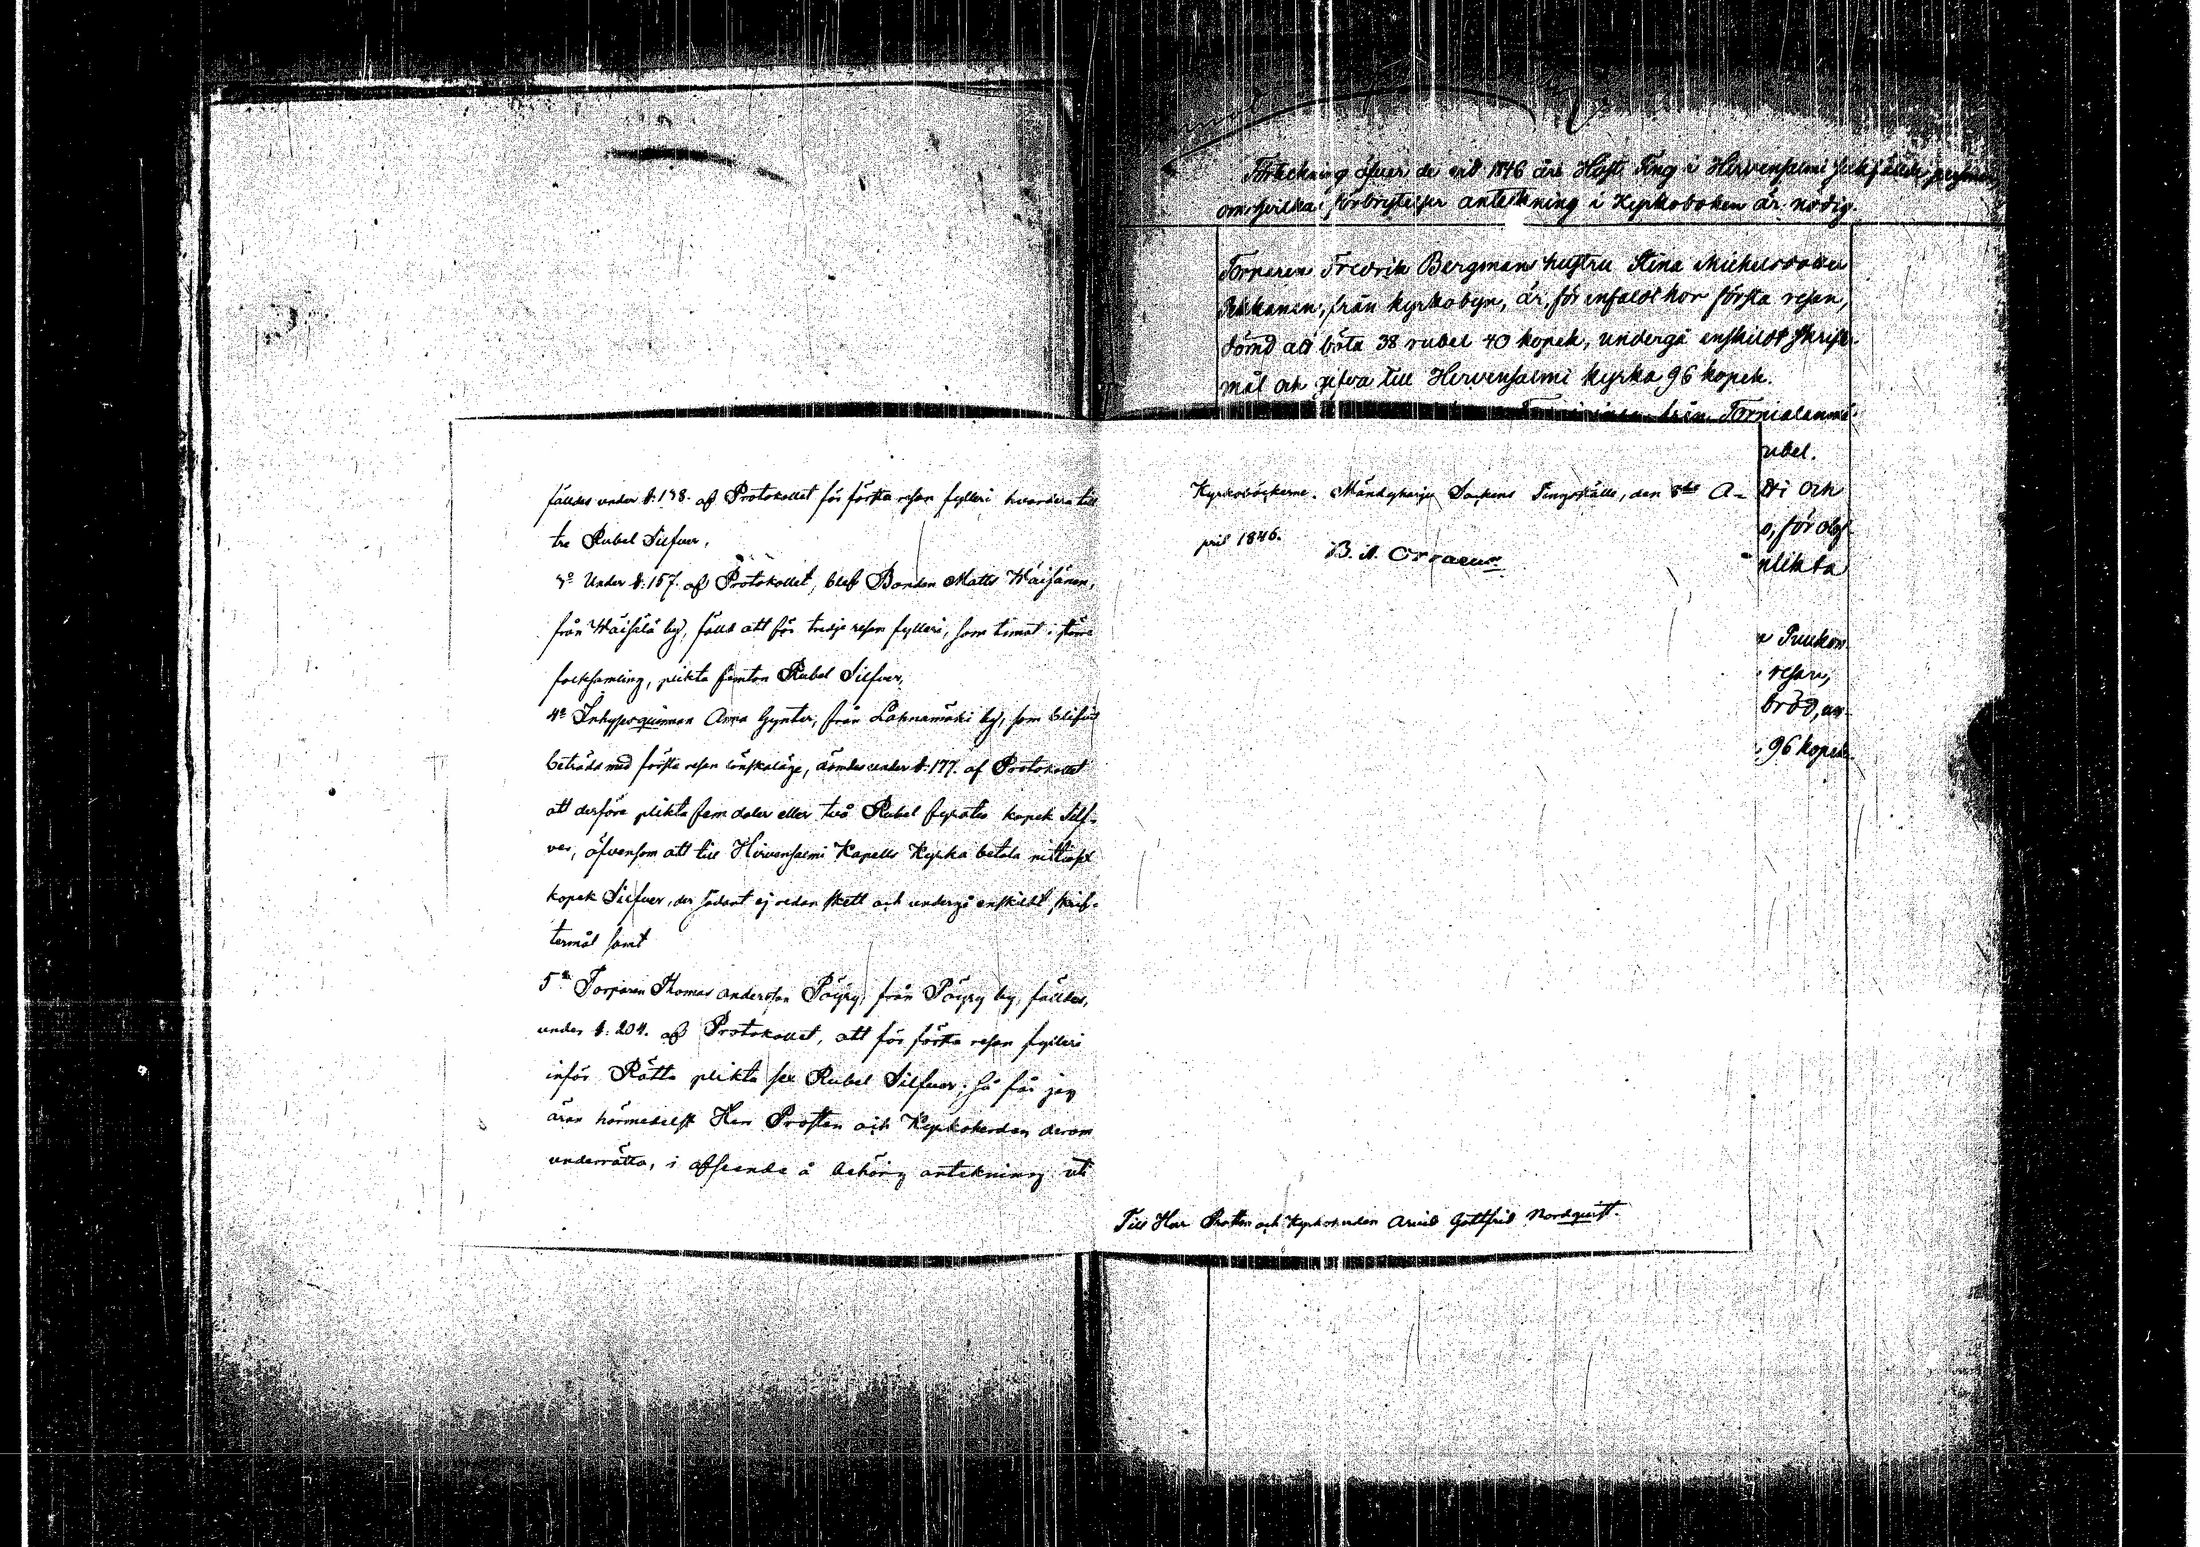 fälldes under §: 138. af Protokollet för första resan fylleri hvardera till
tre Rubel Silfver,
3o Under §: 157. af Protokollet, blef Bonden Matts Wäisänen,
från Wäisälä by, fälld att för tredje resan fylleri, som timat i större
folksamling, plikta femton Rubel Silfver,
4o Inhysesqvinnan Anna Gynter, från Lahnamäki by, som blifvit
beträdd med första resan lönskaläge, dömdes under §: 177. af Protokollet
att derföre plikta fem daler eller två Rubel fyratio kopek Silf-
ver, äfvensom att till Hirvensalmi Kapells Kyrka betala nittiosex
kopek Silfver, der sådant ej redan skett och undergå enskildt skrif-
termål samt
5o Torparen Thomas Andersson Pöyry, från Pöyry by, fälldes,
under §: 204. af Protokollet, att för första resan fylleri
inför Rätta plikta sex Rubel Silfver; så får jag
äran härmedelst Herr Prosten och Kyrkoherden derom
underrätta, i afseende å behörig antekning uti
Kyrkoböckerne. Mäntyharju Sockens Tingställe, den 8de A-
pril 1846.
B. A. Orraeus
Till Herr Prosten och Kyrkoherden Arvid Gottfrid Nordqvist.
Förteckning öfver de vid 1846 års Höst Ting i Hirvensalmi sakfällde personer,
om hvilka förbrytelser anteckning i Kyrkoboken är nödig.
Torparen Fredrik Bergmans hustru Stina Michelsdotter
från kyrkobyn, är, för enfaldt hor första resan,
dömd att böta 38 rubel 40 kopek, undergå enskildt skrifte-
mål och gifva till Hirvensalmi kyrka 96 kopek.
från Tornialanmä-
rubel.
och
för
plikta
Puukon
resan,
bröd, un-
96 kopek